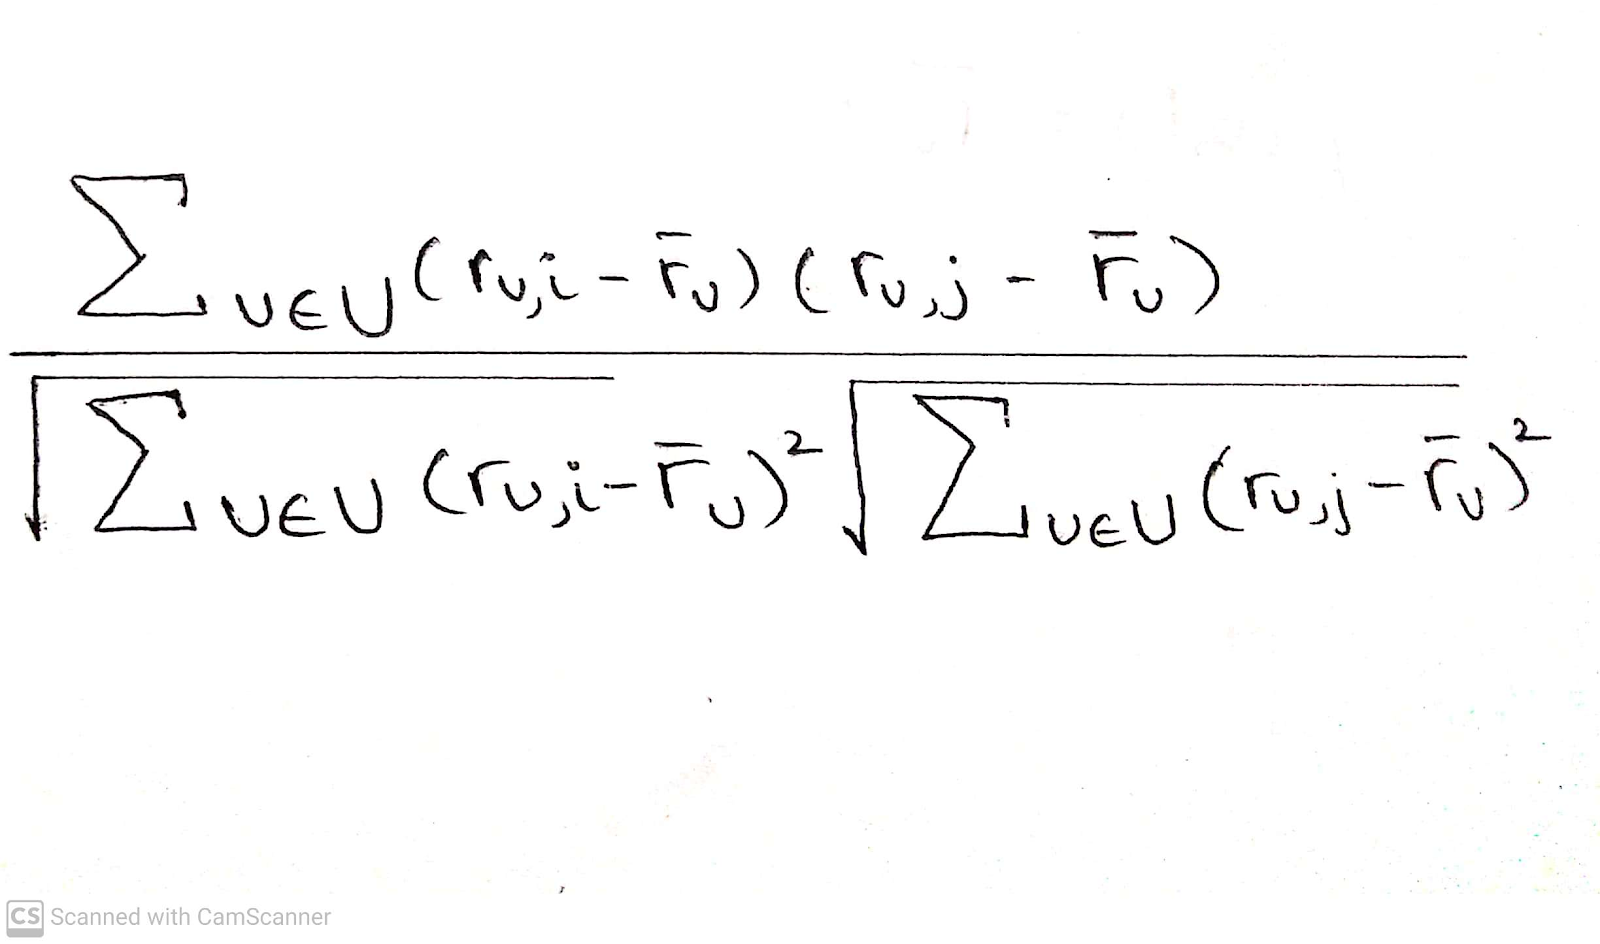 ∑u∈U(ru,i - r̄u)(ru,j - r̄u)
√∑u∈U(ru,i - r̄u)² √∑u∈U(ru,j - r̄u)²
CS Scanned with CamScanner